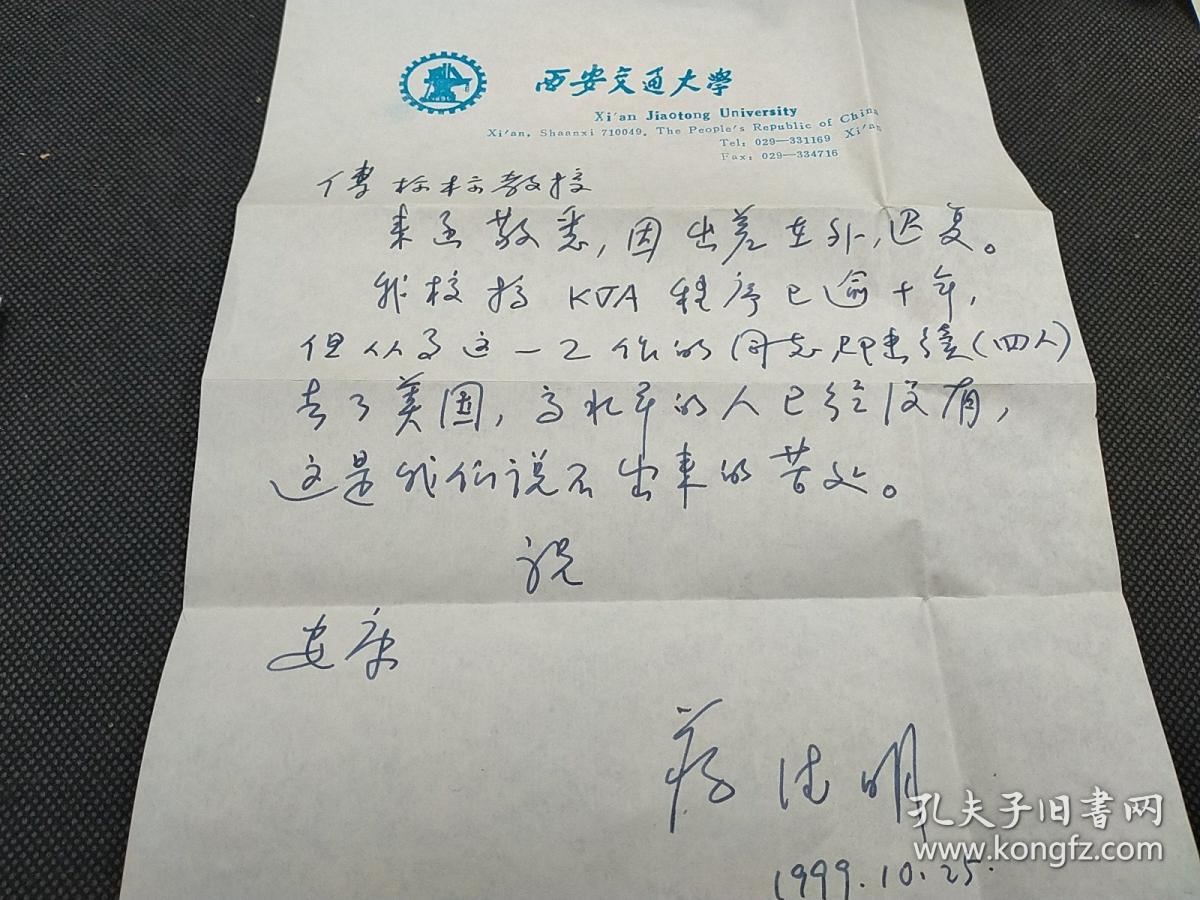 西安交通大学
Xi'an Jiaotong University
Xi'an, Shaanxi 710049, The People's Republic of China
Tel: 029—331169 Xi'an
Fax: 029—334716
教授
来函敬悉，因出差在外，迟复。
我校搞 KVA 程序已逾十年，
但从事这一工作的同志陆续（四人）
去了美国，高水平的人已经没有，
这是我们说不出来的苦处。
祝
安康
蒋德明
1999.10.25.
孔夫子旧书网
www.kongfz.com